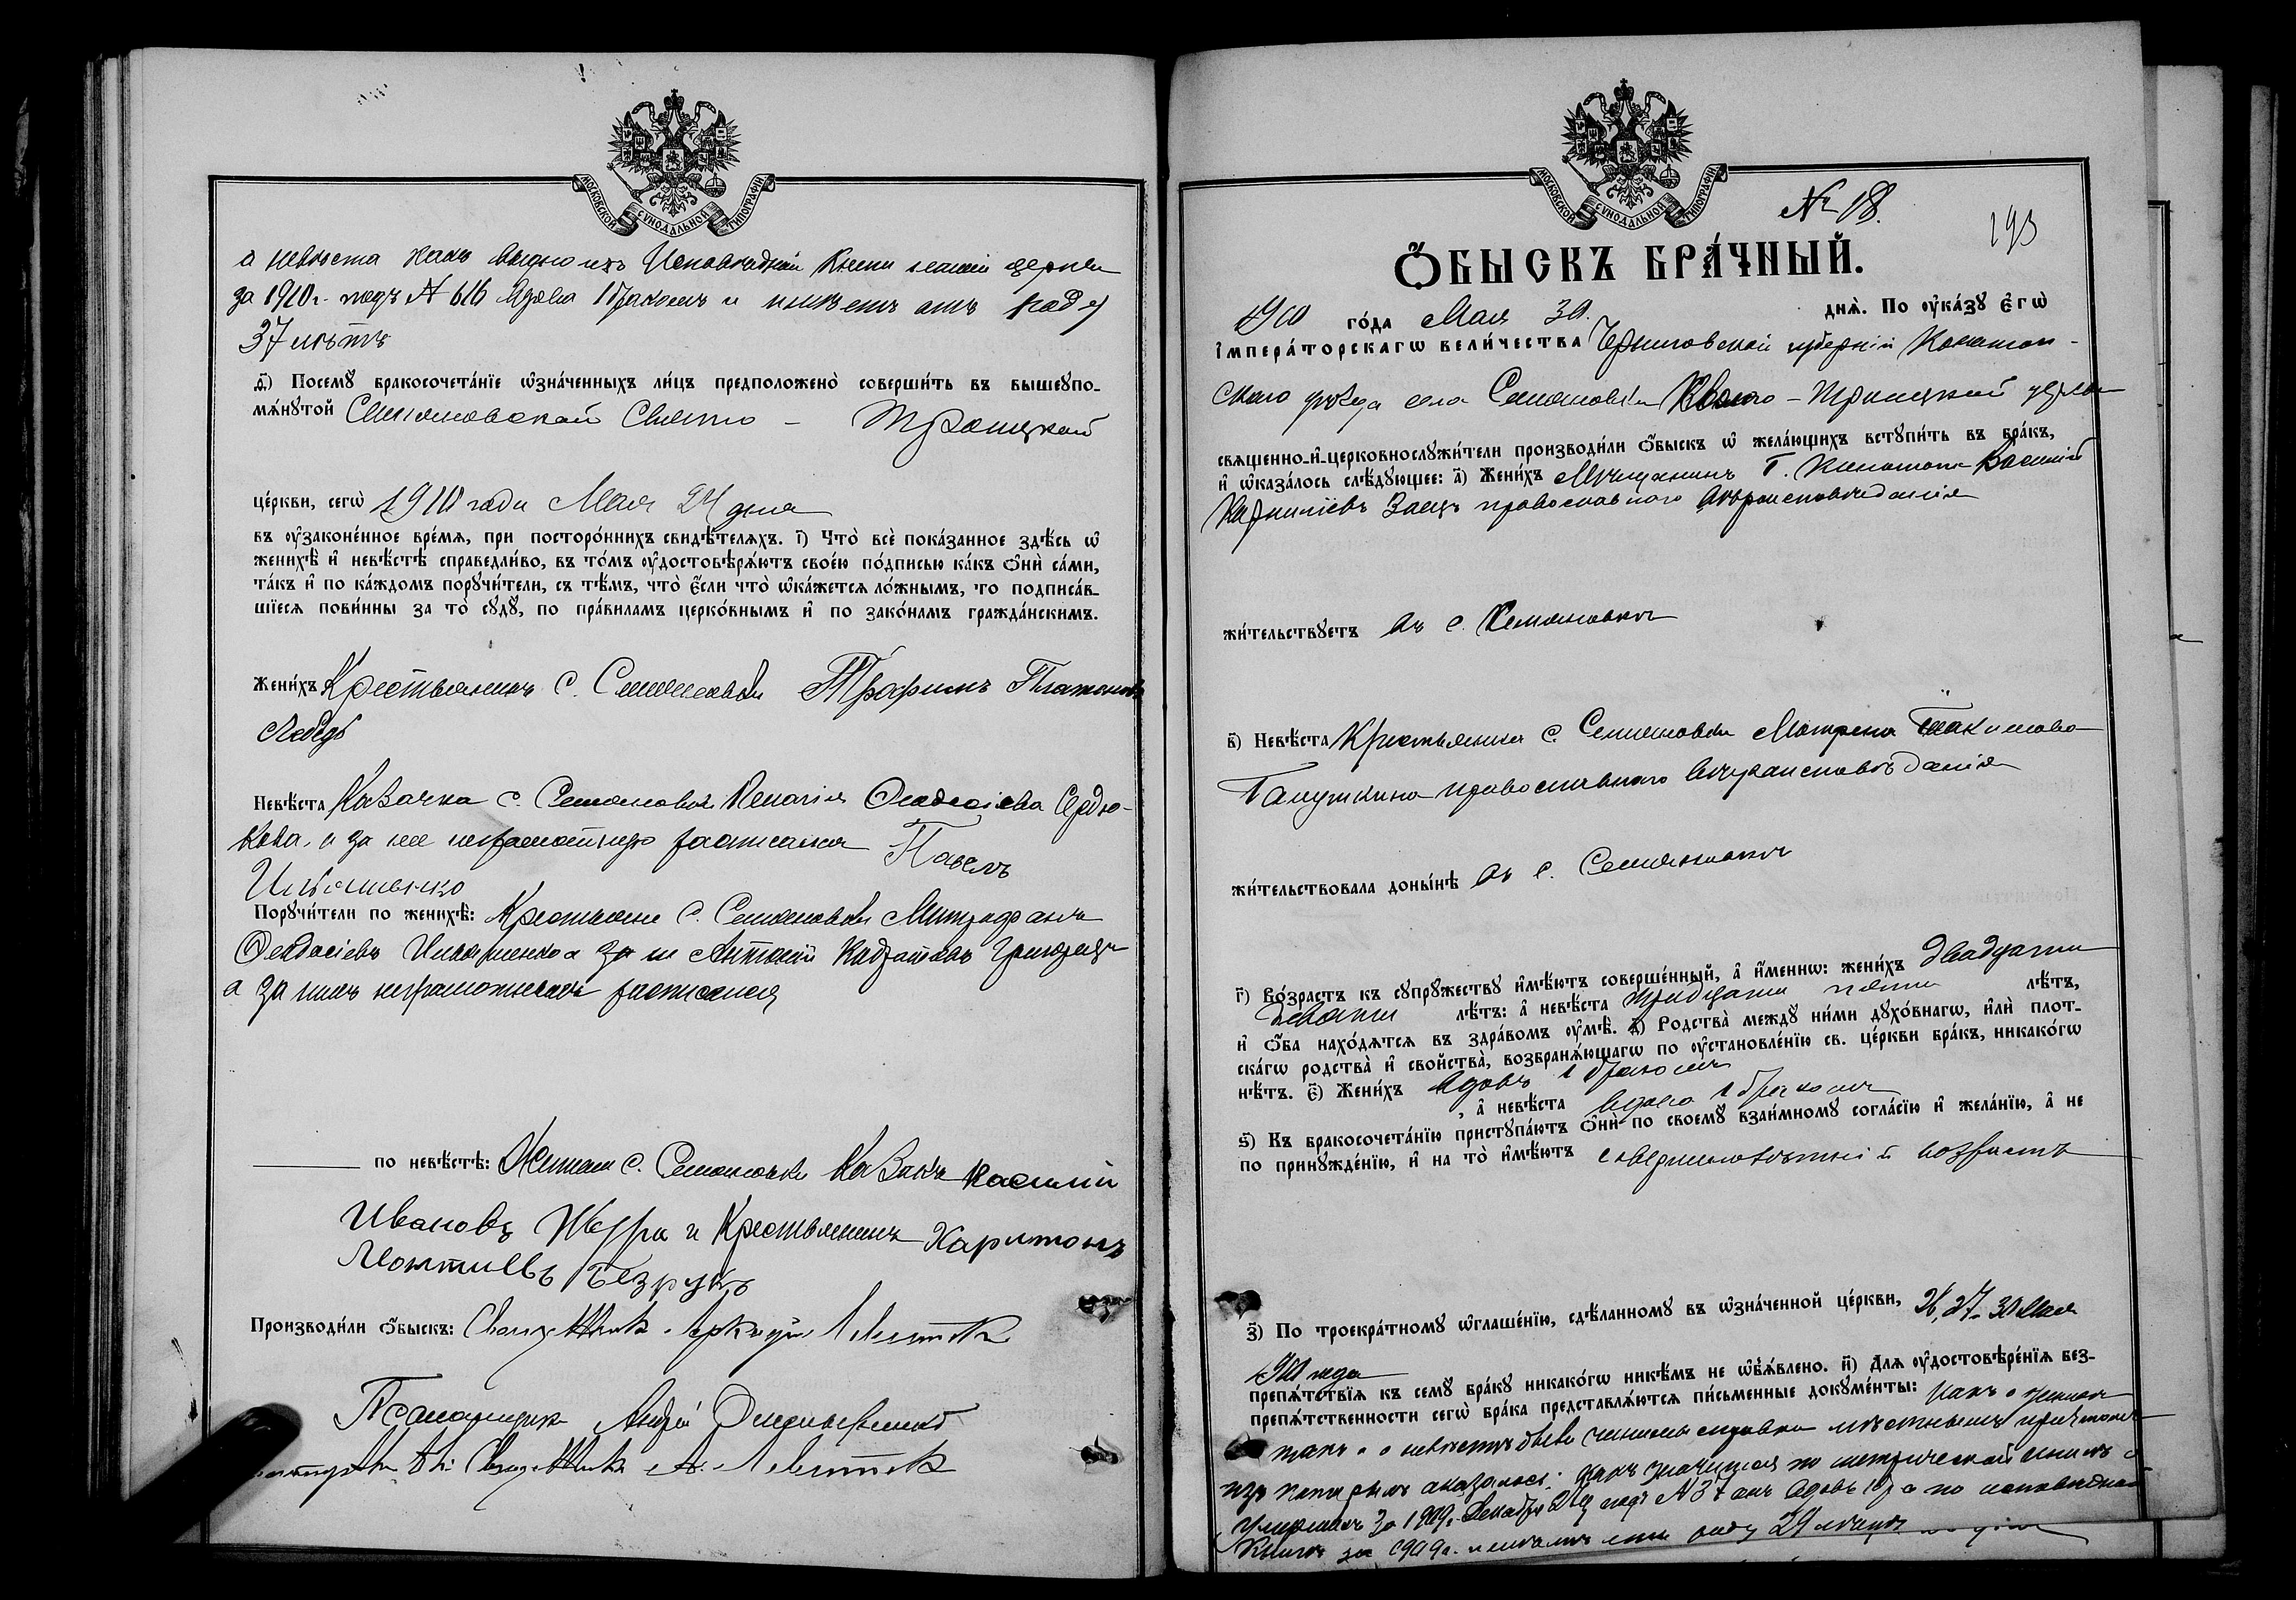 МОСКОВСКОЙ СѴНОДАЛЬНОЙ ТИПОГРАФІИ
а невѣста какъ видно изъ Исповѣдной книги церкви
за 1910 г. подъ № 616 вдова 1 бракомъ и имѣетъ отъ роду
37 лѣтъ
ѳ҃) Посемꙋ̀ бракосочета́нїе ѡ҆зна́ченныхъ ли́цъ предположенѡ̀ соверши́ть въ вышеꙋпо-
мѧ́нꙋтой Семяновской Свято - Троицкой
це́ркви, сегѡ̀ 1910 года Мая 24 дня
въ ᲂу҆законе́нное вре́мѧ, при посторо́ннихъ свидѣ́телѧхъ. і҃) Что̀ всѐ пока́занное здѣ́сь ѡ҆
женихѣ̀ и҆ невѣ́стѣ справедли́во, въ то́мъ ᲂу҆достовѣрѧ́ютъ свое́ю по́дписью ка́къ ѻ҆нѝ са́ми,
та́къ и҆ по ка́ждомъ порꙋчи́тели, съ тѣ́мъ, что̀ є҆́сли что̀ ѡ҆ка́жетсѧ ло́жнымъ, то подписа́в-
шїесѧ пови́нны за то̀ сꙋдꙋ̀, по пра́виламъ церко́внымъ и҆ по зако́намъ гражда́нскимъ.
Жени́хъ Крестьянинъ с. Семяновки Трофимъ Платоновъ
Лебедь
Невѣ́ста Казачка с. Семяновки Ѳеодосіева Сердю-
кова, а за нее неграмотную росписался Павелъ
Ильяшенко
Порꙋчи́тели по женихѣ̀: Крестьяне с. Семяновки Митрофанъ
Ѳеодосіевъ Ильяшенко а Антоній
а за нихъ неграмотныхъ росписался
по невѣ́стѣ: Жители с. Семяновки Казакъ Василій
Ивановъ и Крестьянинъ Харитонъ
Леонтіевъ Безрукъ
Производи́ли ѻ҆́быскъ: Священникъ Аркадій Левитскій
Псаломщикъ Андрей
Священникъ А. Левитскій
МОСКОВСКОЙ СѴНОДАЛЬНОЙ ТИПОГРАФІИ
№ 18.
193
Ѻ҆́БЫСКЪ БРА́ЧНЫЙ.
1910 го́да Мая 30. днѧ̀. По ᲂу҆ка́зꙋ є҆гѡ̀
і҆мпера́торскагѡ вели́чества Черниговской губерніи Конотоп-
скаго уѣзда села Семяновки Свято-Троицкой церкви
свѧщенно-и҆-церковнослꙋжи́тели производи́ли ѻ҆́быскъ ѡ҆ жела́ющихъ встꙋпи́ть въ бра́къ,
и҆ ѡ҆каза́лось слѣ́дꙋющее: а҃) Жени́хъ Мѣщанинъ г. Конотопа Василій
Корниліевъ Заецъ православнаго вѣроисповѣданія
жи́тельствꙋетъ въ с. Семяновкѣ
в҃) Невѣ́ста Крестьянка с. Семяновки Матрена Іакимова
Галушкина православнаго вѣроисповѣданія
жи́тельствовала доны́нѣ въ с. Семяновкѣ
г҃) Во́зрастъ къ сꙋпрꙋ́жествꙋ и҆мѣ́ютъ соверше́нный, а҆ и҆́меннѡ: жени́хъ двадцати
девяти лѣ́тъ: а҆ невѣ́ста тридцати пяти лѣ́тъ,
и҆ ѻ҆́ба нахо́дѧтсѧ въ здра́вомъ ᲂу҆мѣ̀. д҃) Родства̀ междꙋ ни́ми дꙋхо́внагѡ, и҆лѝ плот-
ска́гѡ родства̀ и҆ свойства̀, возбранѧ́ющагѡ по ᲂу҆становле́нїю св. це́ркви бра́къ, никако́гѡ
нѣ́тъ. є҃) Жени́хъ вдовъ 1 бракомъ
, а҆ невѣ́ста вдова 1 бракомъ
ѕ҃) Къ бракосочета́нїю пристꙋпа́ютъ ѻ҆нѝ по своемꙋ̀ взаи́мномꙋ согла́сїю и҆ жела́нїю, а҆ не
по принꙋжде́нїю, и҆ на то̀ и҆мѣ́ютъ совершеннолѣтній возрастъ
з҃) По троекра́тномꙋ ѡ҆глаше́нїю, сдѣ́ланномꙋ въ ѡ҆зна́ченной це́ркви, 27, 30 Мая
1910 года
препѧ́тствїѧ къ семꙋ̀ бра́кꙋ никако́гѡ никѣ́мъ не ѡ҆б̾ѧ́влено. и҃) Длѧ ᲂу҆достовѣре́нїѧ без-
препѧ́тственности сегѡ̀ бра́ка представлѧ́ютсѧ пи́сьменные докꙋме́нты: какъ о женихѣ
такъ и о невѣстѣ были чинимы справки мѣстнымъ причтомъ
изъ которыхъ оказалось: какъ значится по метрической книгѣ о
умершихъ за 1909 г. Декабря подъ № 37 онъ вдовъ а по исповѣдной
книгѣ за 1909 г. роду 29 лѣтъ